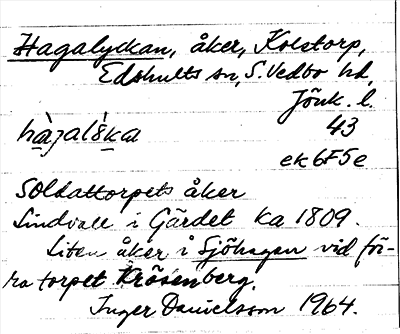 Hagalyckan, åker, Kolstorp,
Edshults sn, S. Vedbo hd,
Jönk. l.
43
hàgalŏ́ka
ek 6F5e
Soldattorpets åker
Lindvall i Gärdet ka 1809.
Liten åker i Sjöhagen vid fö-
ra torpet Krösenberg.
Inger Danielsson 1964.